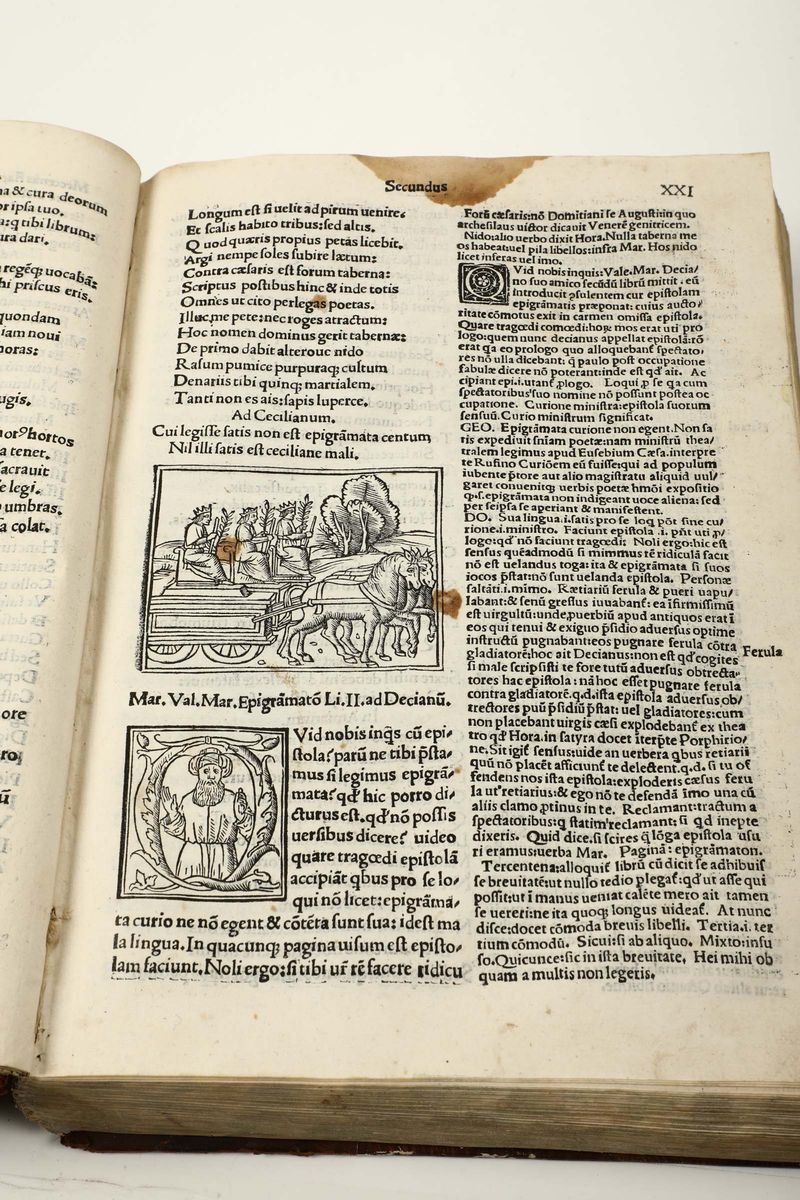 na & cura deorum
or ipsa tuo.
a:q tibi librum:
ura dari.
regéq; uocabā:
hi priscus eris.
quondam
iam noui
noras:
ugis.
hortos
a tener.
sacrauit
e legi.
umbras.
a colat.
ore
ro;
Secundus
XXI
Longum est si uelit ad pirum uenire:
Et scalis habito tribus:sed altis.
Quod quæris propius petas licebit.
Argi nempe soles subire lætum:
Contra cæsaris est forum taberna:
Scriptus postibus hinc & inde totis
Omnes ut cito perlegas poetas.
Illuc me pete:nec roges atractum:
Hoc nomen dominus gerit tabernæ:
De primo dabit alteroue nido
Rasum pumice purpuraq; cultum
Denariis tibi quinq; martialem.
Tanti non es ais:sapis luperce.
Ad Cecilianum.
Cui legisse satis non est epigrāmata centum
Nil illi satis est ceciliane mali.
Mar. Val. Mar. Epigrāmatō Li. II. ad Decianū.
Vid nobis inqs cū epi/
stola? parū ne tibi p̄sta/
mus si legimus epigrā/
mata? qd' hic porro di/
cturus est. qd' nō possis
uersibus dicere? uideo
quare tragœdi epistolā
accipiāt qbus pro se lo/
qui nō licet:epigrāma/
ta curio ne nō egent & cōtēta sunt sua: idest ma
la lingua. In quacunq; pagina uisum est episto/
lam faciunt. Noli ergo:si tibi ur̄ rē facere ridicu
Forū cæsaris:nō Domitiani se Augusti:in quo
archesilaus uictor dicauit Venerē genitricem.
Nido:alio uerbo dixit Hora. Nulla taberna me
os habeat:uel pila libellos:infra Mar. Hos nido
licet inseras uel imo.
Vid nobis inquis: Vale. Mar. Decia/
no suo amico fecūdū librū mittit. eū
introducit ꝯsulentem cur epistolam
epigrāmatis præponat: cuius aucto/
ritate cōmotus exit in carmen omissa epistola.
Quare tragœdi comœdi:hoꝝ mos erat uti pro
logo:quem nunc decianus appellat epistolā:rō
erat qa eo prologo quo alloquebant' spectato,
res nō ulla dicebant: q̄ paulo post occupatione
fabulæ dicere nō poterant:inde est qd' ait. Ac
cipiant epi.i.utant' ꝓlogo. Loqui ꝓ se qa cum
spectatoribus suo nomine nō possunt postea oc
cupatione. Curione ministra:epistola suorum
sensuū. Curio ministrum significat.
GEO. Epigrāmata curione non egent. Non sa
tis expediuit sn̄iam poetæ:nam ministrū thea/
tralem legimus apud Eusebium Cæsa. interpre
te Rufino Curiōem eū fuisse:qui ad populum
iubente p̄tore aut alio magistratu aliquid uul/
garet conuenitq; uerbis poetæ hmōi expositio
q.s. epigrāmata non indigeant uoce aliena: sed
per seipsa se aperiant & manifestent.
DO. Sua lingua.i.satis pro se loq pōt sine cu/
rione.i.ministro. Faciunt epistola .i. pn̄t uti ꝓ/
logo:qd' nō faciunt tragœdi: Noli ergo:hic est
sensus quēadmodū si mimmus tē ridiculā facit
nō est uelandus toga: ita & epigrāmata si suos
iocos p̄stat:nō sunt uelanda epistola. Personæ
saltāti.i.mimo. Rætiariū ferula & pueri uapu/
labant:& senū gressus iuuabant': ea ifirmissimū
est uirgultū:unde ꝓuerbiū apud antiquos erat i
eos qui tenui & exiguo p̄sidio aduersus optime
instructū pugnabant:eos pugnare ferula cōtra
gladiatorē:hoc ait Decianus:non est qd' cogites
si male scripsisti te fore tutū aduersus obtrecta/
tores hac epistola: nā hoc esset pugnare ferula
contra gladiatorē.q.d.ista epistola aduersus ob/
trectores puū p̄sidiū p̄stat: uel gladiatores:cum
non placebant uirgis cæsi explodebant' ex thea
tro qd' Hora. in satyra docet iterp̄te Porphirio/
ne. Sit igit' sensus:uide an uerbera qbus retiarii
quū nō placēt afficiunt' te delectent.q.d. si tu of
fendens nos ista epistola:exploderis cæsus feru
la ut retiarius:& ego nō te defendā imo una cū
aliis clamo ꝓtinus in te. Reclamant:tractum a
spectatoribus:q statim reclamant: si qd inepte
dixeris. Quid dice.si scires q̄ lōga epistola usu
ri eramus:uerba Mar. Paginā: epigrāmaton.
Tercentena:alloquit' librū cū dicit se adhibuis
se breuitatē:ut nullo tedio plegat':qd' ut asse qui
possit:ut i manus ueniat calēte mero ait tamen
se uereri:ne ita quoq; longus uideat'. At nunc
disce:docet cōmoda breuis libelli. Tertia.i. ter
tium cōmodū. Sicui:si ab aliquo. Mixto:infu
so. Quicunce:sic in ista breuitate. Hei mihi ob
quam a multis non legeris.
Ferula